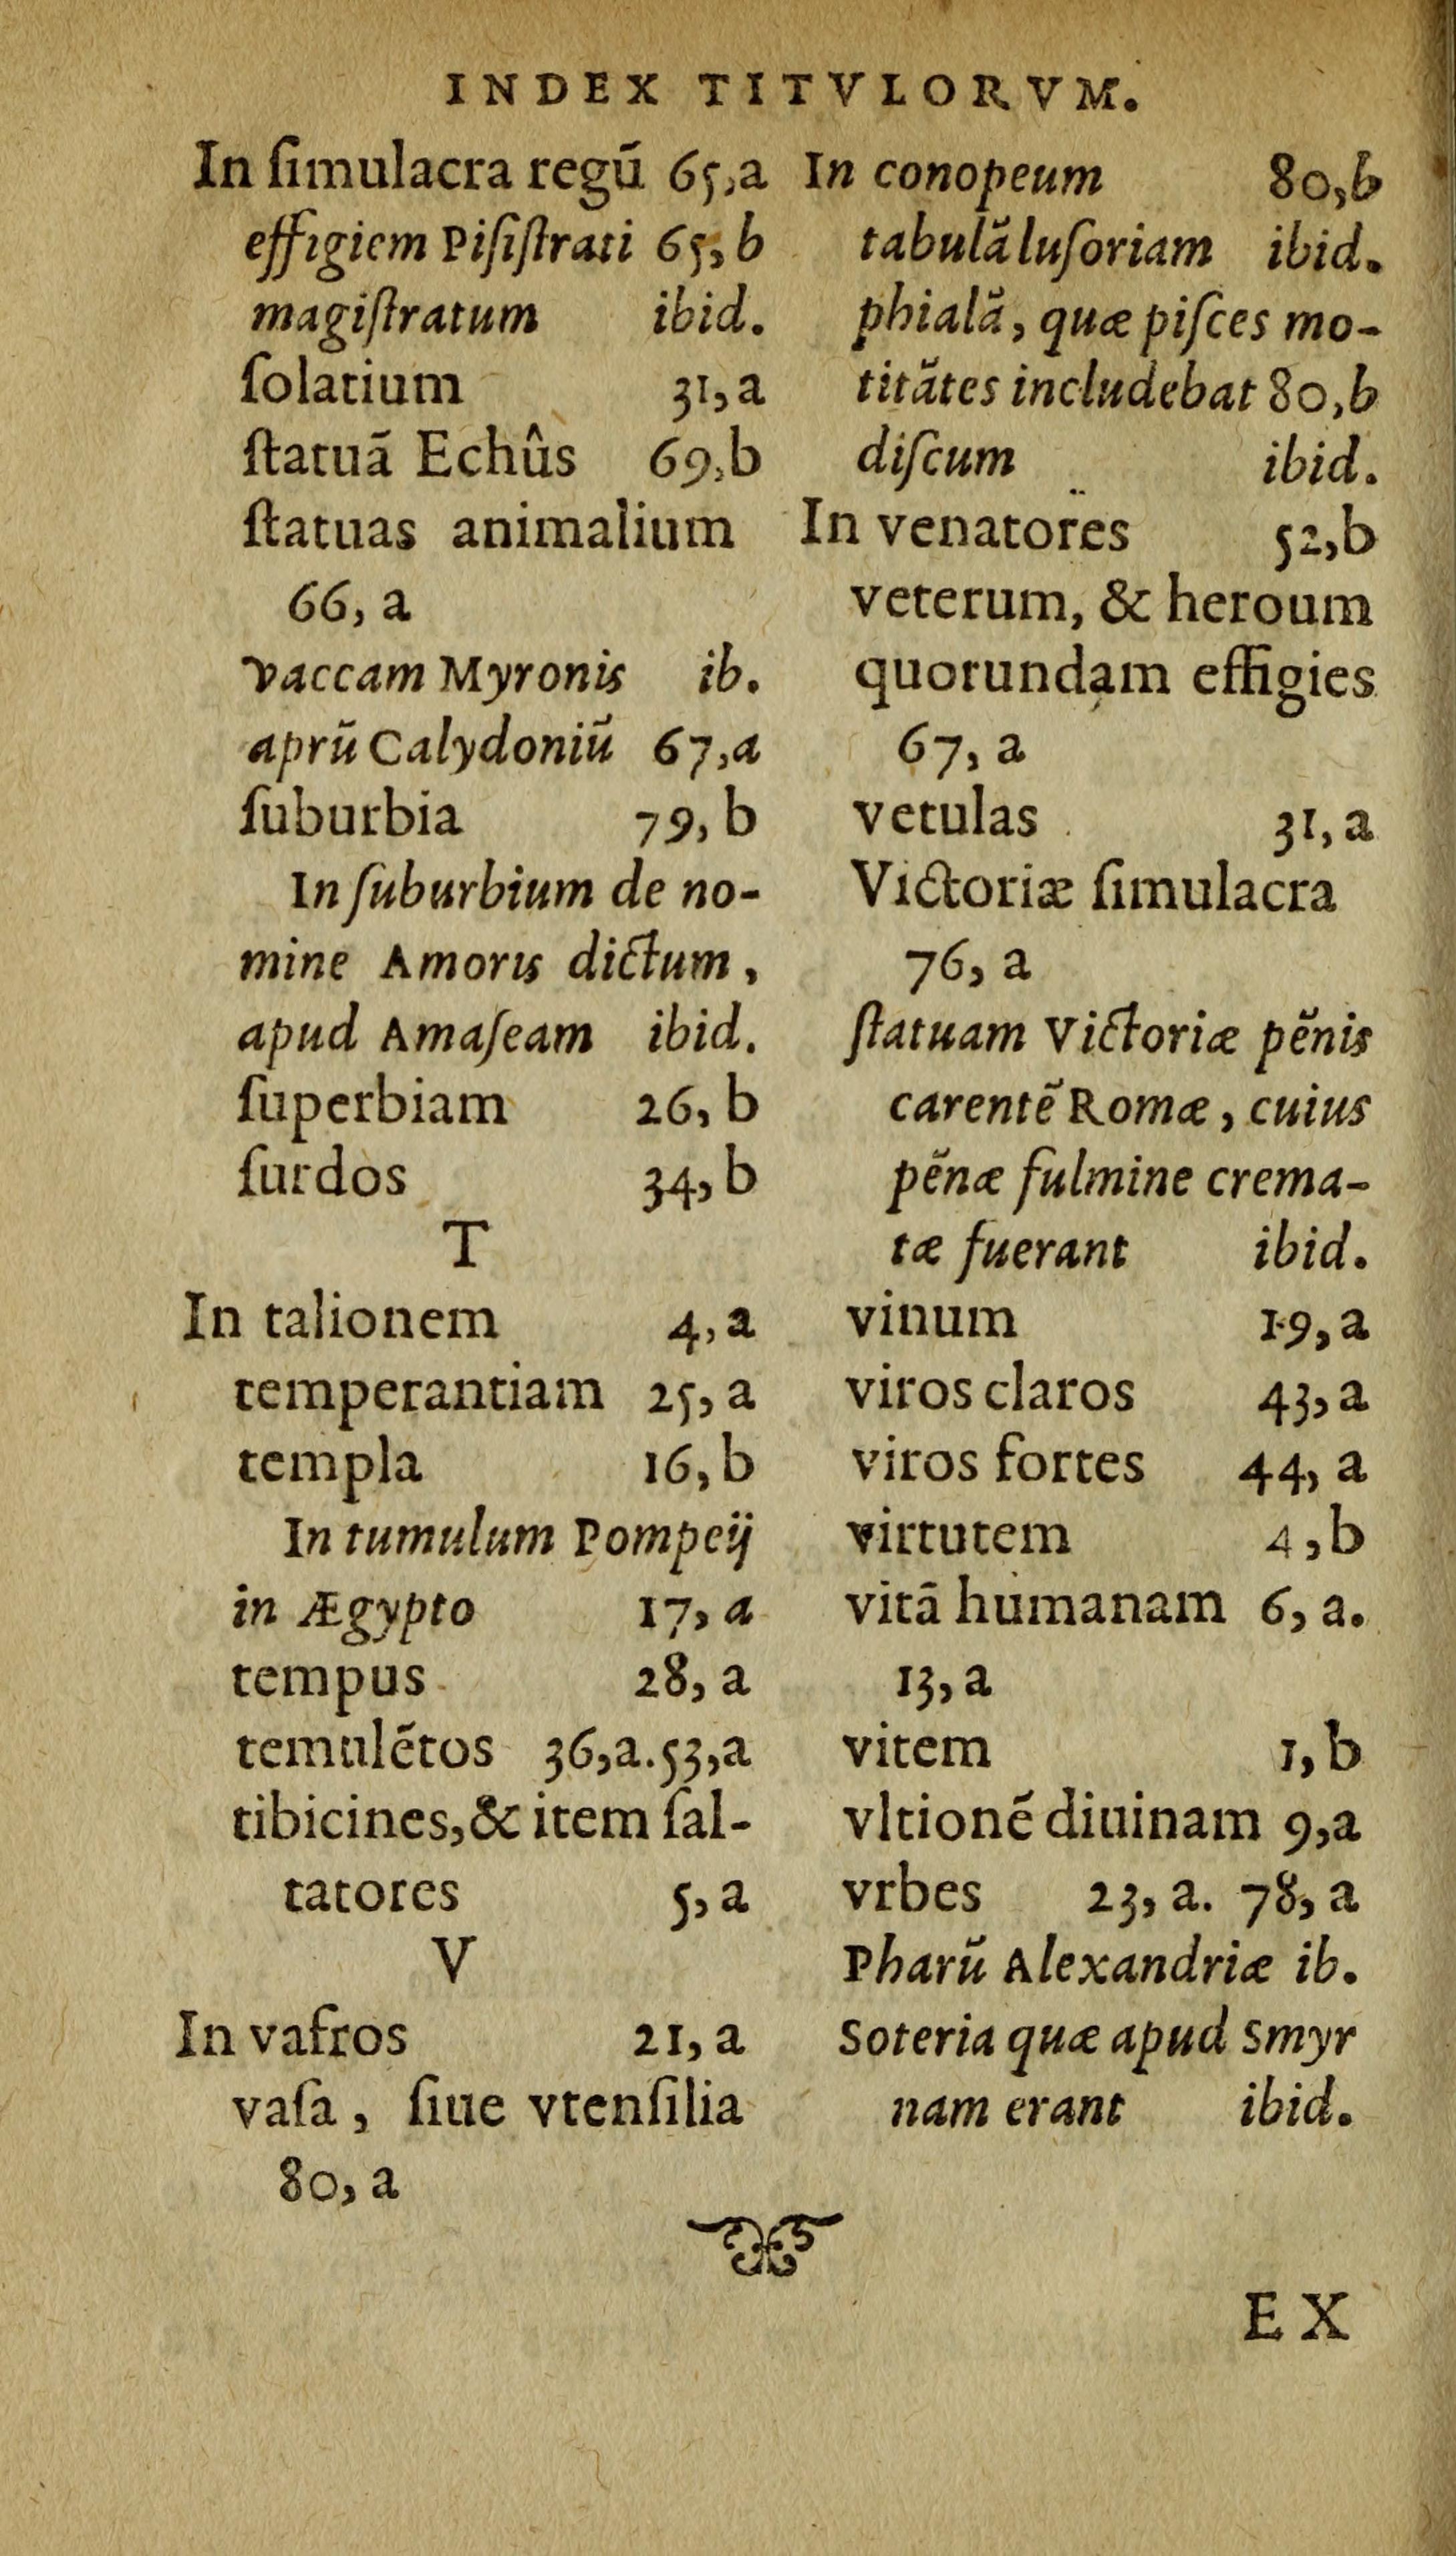 INDEX TITVLORVM.
In ſimulacra regū 65,a
effigiem Piſiſtrati 65,b
magiſtratum ibid.
ſolatium 31,a
ſtatuā Echûs 69,b
ſtatuas animalium
66, a
vaccam Myronis ib.
aprū Calydoniū 67,a
ſuburbia 79, b
In ſuburbium de no-
mine Amoris dictum,
apud Amaſeam ibid.
ſuperbiam 26, b
ſurdos 34, b
T
In talionem 4, a
temperantiam 25, a
templa 16, b
In tumulum Pompeij
in Ægypto 17, a
tempus 28, a
temulētos 36,a.53,a
tibicines,& item ſal-
tatores 5, a
V
In vafros 21, a
vaſa, ſiue vtenſilia
80, a
In conopeum 80,b
tabulā luſoriam ibid.
phialā, quæ piſces mo-
titātes includebat 80,b
diſcum ibid.
In venatores 52,b
veterum, & heroum
quorundam effigies
67, a
vetulas 31, a
Victoriæ ſimulacra
76, a
ſtatuam Victoriæ pēnis
carentē Romæ, cuius
pēnæ fulmine crema-
tæ fuerant ibid.
vinum 19, a
viros claros 43, a
viros fortes 44, a
virtutem 4,b
vitā humanam 6, a.
13, a
vitem 1, b
vltionē diuinam 9,a
vrbes 23, a. 78, a
Pharū Alexandriæ ib.
Soteria quæ apud Smyr
nam erant ibid.
EX